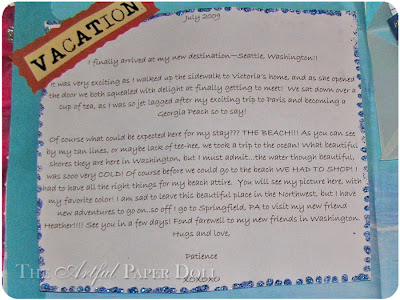 VACATION
July 2009
I finally arrived at my new destination—Seattle, Washington!!
It was very exciting as I walked up the sidewalk to Victoria's home, and as she opened
the door we both squealed with delight at finally getting to meet! We sat down over a
cup of tea, as I was so jet lagged after my exciting trip to Paris and becoming a
Georgia Peach so to say!
Of course what could be expected here for my stay??? THE BEACH!!! As you can see
by my tan lines, or maybe lack of tee-hee, we took a trip to the ocean! What beautiful
shores they are here in Washington, but I must admit...the water though beautiful,
was sooo very COLD! Of course before we could go to the beach WE HAD TO SHOP! I
had to have all the right things for my beach attire. You will see my picture here, with
my favorite color! I am sad to leave this beautiful place in the Northwest, but I have
new adventures to go on..so off I go to Springfield, PA to visit my new friend
Heather!!!! See you in a few days! Fond farewell to my new friends in Washington.
Hugs and love,
Patience
XOXOXO
THE Artful PAPER DOLL